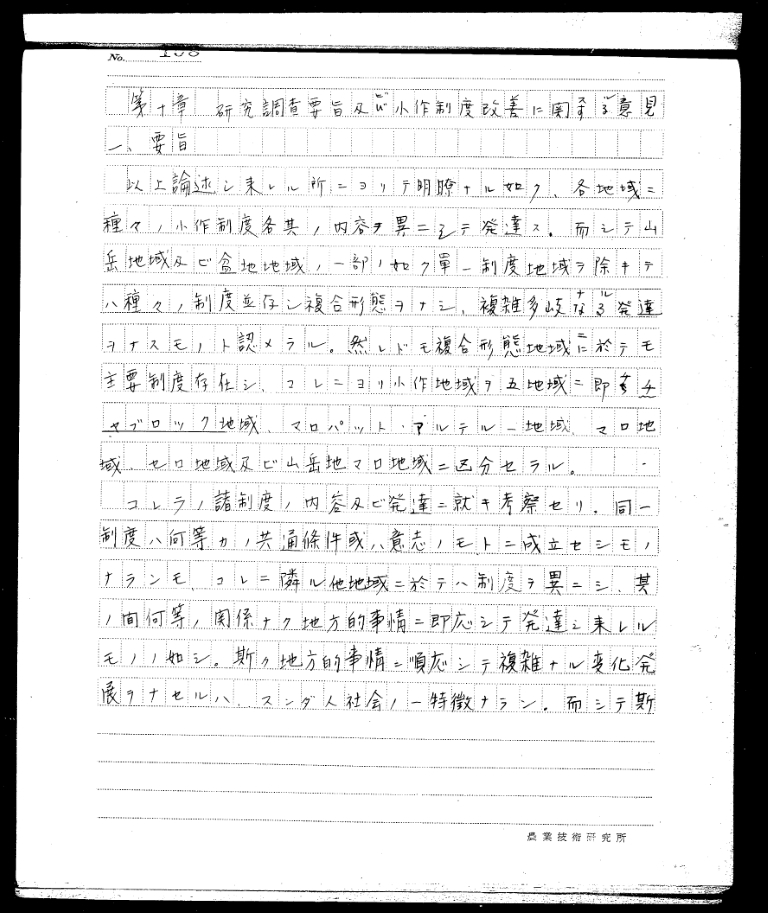 No. 198
第十章 研究調査要旨及ビ小作制度改善に関する意見
一、要旨
以上論述シ来レル所ニヨリテ明瞭ナル如ク、各地域ニ
種々ノ小作制度各其ノ内容ヲ異ニシテ発達ス。而シテ山
岳地域及ビ盆地地域ノ一部ノ如ク單一制度地域ヲ除キテ
ハ種々ノ制度並存シ複合形態ヲナシ、複雑多岐なる発達
ヲナスモノト認メラル。然レドモ複合形態地域に於テモ
主要制度存在シ、コレニヨリ小作地域ヲ五地域ニ即チチ
ャブロック地域、マロパット・アルテルー地域、マロ地
域、セロ地域及ビ山岳地マロ地域ニ区分セラル。
コレラノ諸制度ノ内容及ビ発達ニ就キ考察セリ。同一
制度ハ何等カノ共通條件或ハ意志ノモトニ成立セシモノ
ナランモ、コレニ隣ル他地域ニ於テハ制度ヲ異ニシ、其
ノ間何等ノ関係ナク地方的事情ニ即応シテ発達シ来レル
モノノ如シ。斯ク地方的事情ニ順応シテ複雑ナル変化発
展ヲナセルハ、スンダ人社会ノ一特徴ナラン。而シテ斯
農業技術研究所